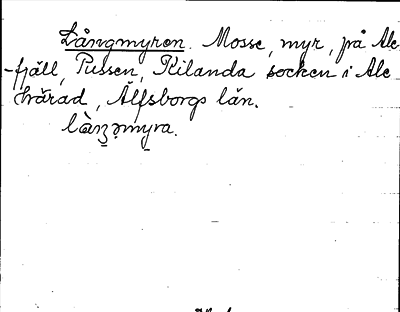 Långmyren. Mosse, myr, på Ale
-fjäll, Pussen, Kilanda socken i Ale
härad, Älfsborgs län.